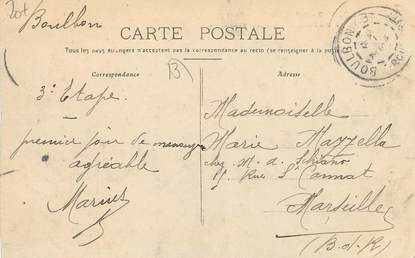 20+
Boulbon
CARTE POSTALE
Tous les pays étrangers n'acceptent pas la correspondance au recto (se renseigner à la poste)
Correspondance
Adresse
13
3e Etape
premier jour de menage
agréable
Marius
Mademoiselle
Marie Mazzella
chez M. d. Schiano
Rue St Cannat
Marseille
(B-d-R)
BOULBON